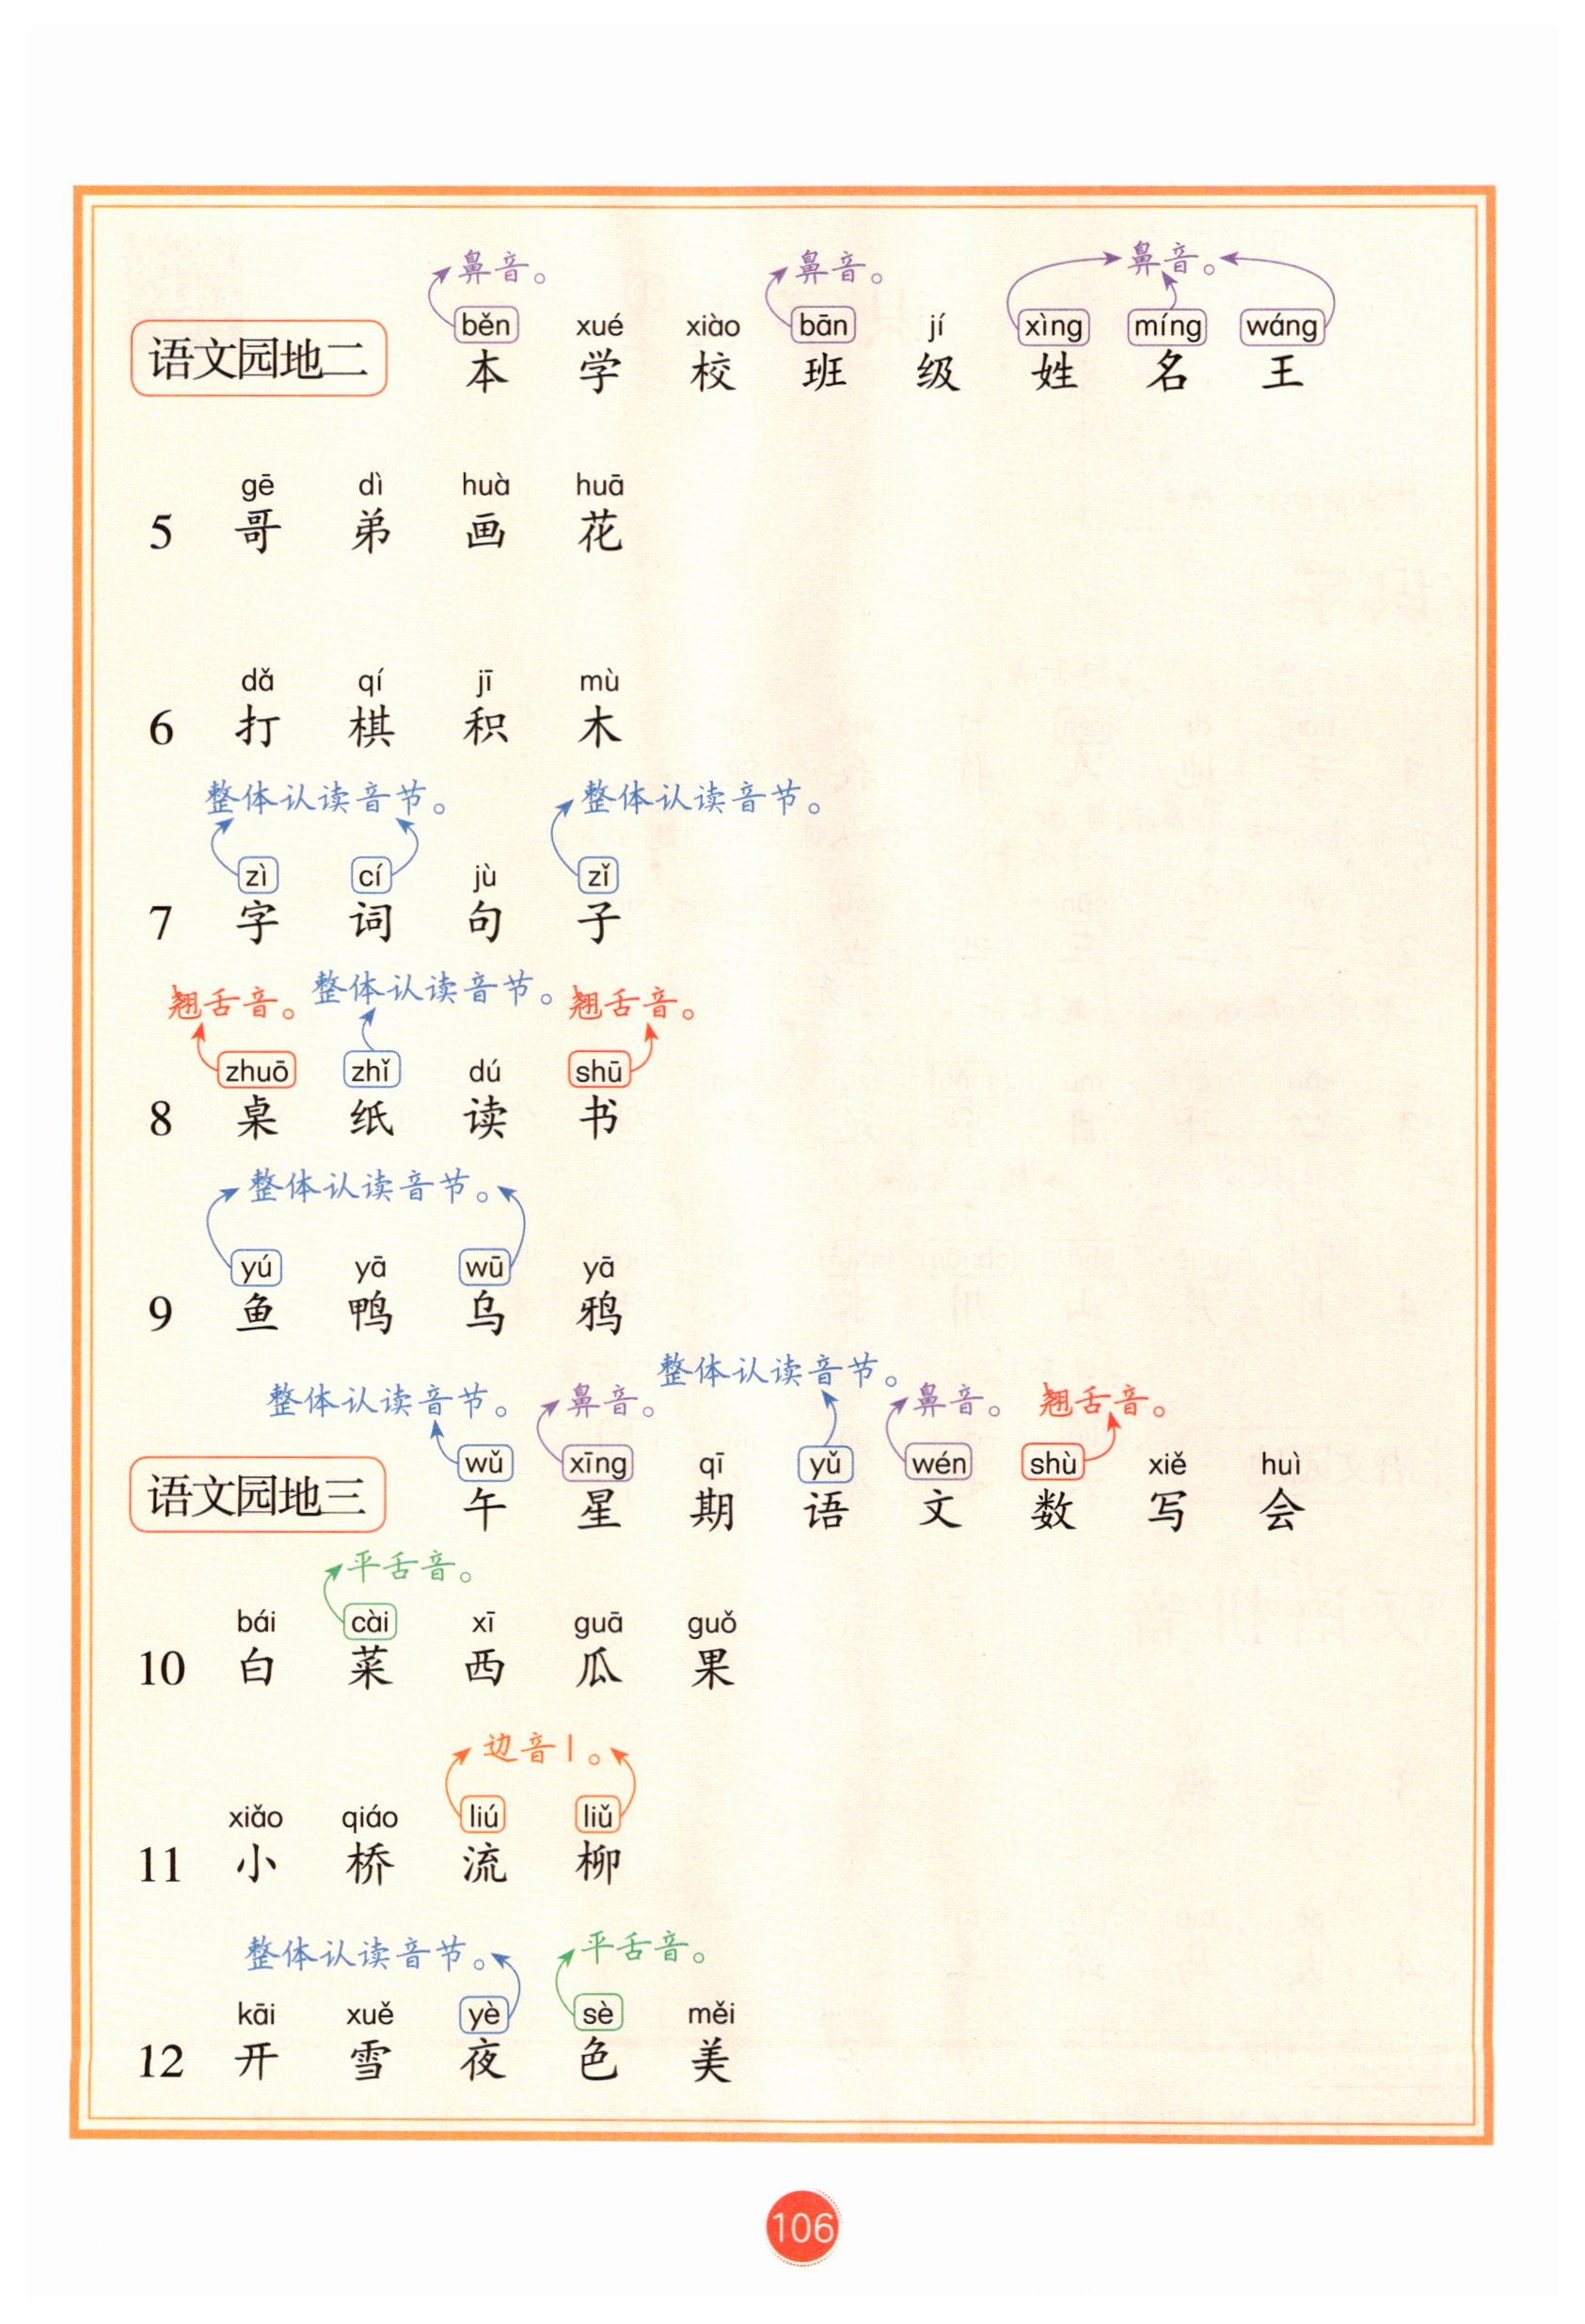 鼻音。 鼻音。 鼻音。
běn xué xiào bān jí xìng míng wáng
语文园地二 本 学 校 班 级 姓 名 王
gē dì huà huā
5 哥 弟 画 花
dǎ qí jī mù
6 打 棋 积 木
整体认读音节。 整体认读音节。
zì cí jù zǐ
7 字 词 句 子
翘舌音。 整体认读音节。 翘舌音。
zhuō zhǐ dú shū
8 桌 纸 读 书
整体认读音节。
yú yā wū yā
9 鱼 鸭 乌 鸦
整体认读音节。 鼻音。 整体认读音节。 鼻音。 翘舌音。
wǔ xīng qī yǔ wén shù xiě huì
语文园地三 午 星 期 语 文 数 写 会
平舌音。
bái cài xī guā guǒ
10 白 菜 西 瓜 果
边音l。
xiǎo qiáo liú liǔ
11 小 桥 流 柳
整体认读音节。 平舌音。
kāi xuě yè sè měi
12 开 雪 夜 色 美
106